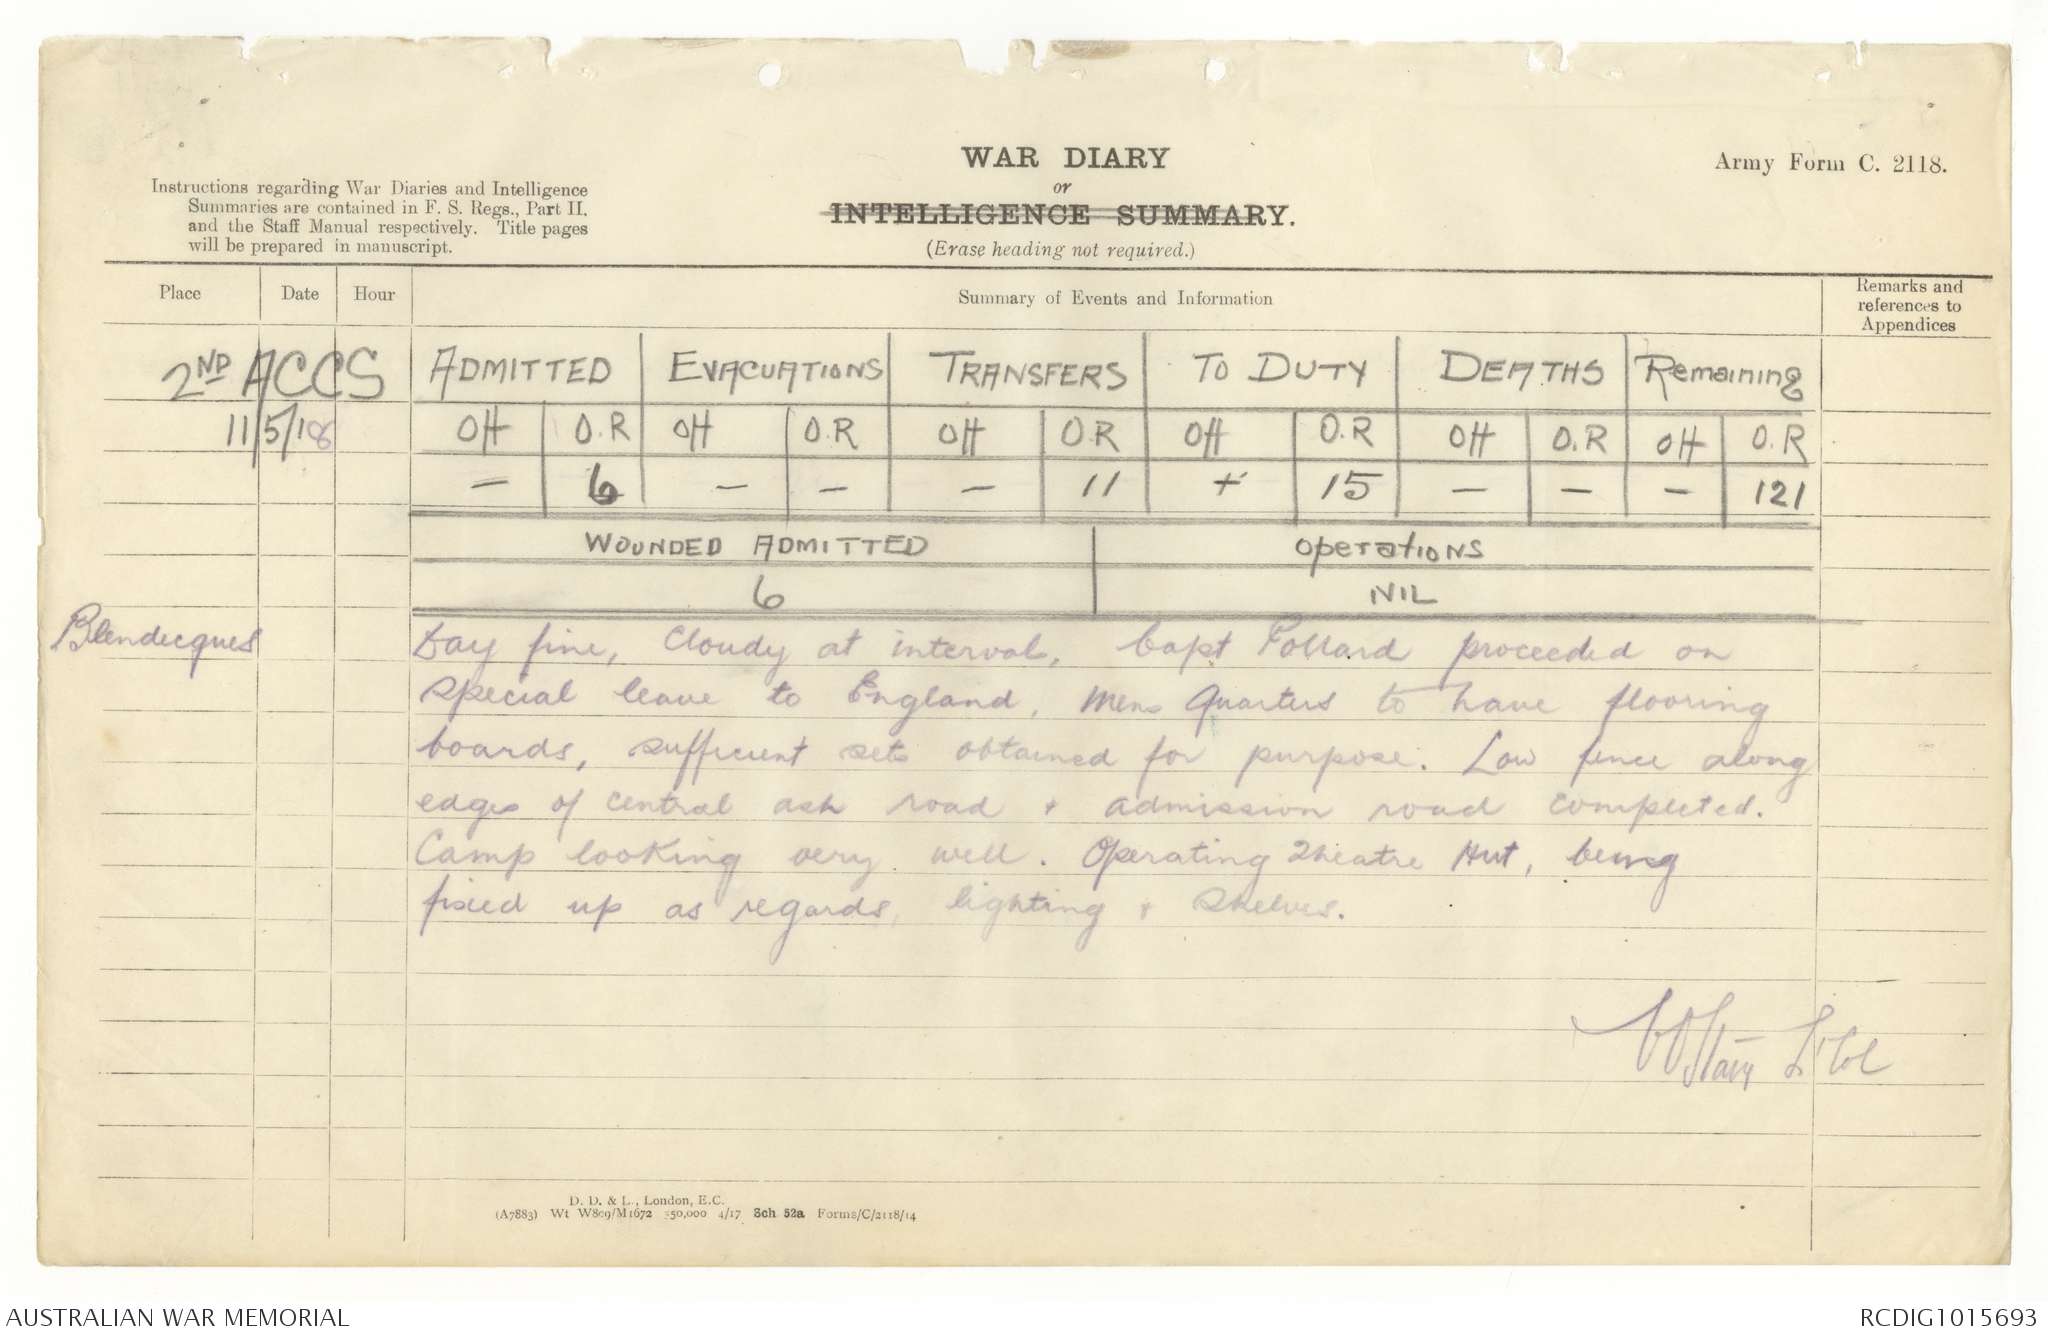 WAR DIARY
or
INTELLIGENCE SUMMARY.
(Erase heading not required.)
Army Form C. 2118.
Instructions regarding War Diaries and Intelligence
Summaries are contained in F. S. Regs., Part II.
and the Staff Manual respectively. Title pages
will be prepared in manuscript.
Place Date Hour Summary of Events and Information Remarks and references to Appendices
2ND ACCS ADMITTED EVACUATIONS TRANSFERS TO DUTY DEATHS Remaining
11/5/18 Off O.R Off O.R Off O.R Off O.R Off O.R Off O.R
— 6 — — — 11 + 15 — — — 121
WOUNDED ADMITTED Operations
6 NIL
Blendecques Day fine, Cloudy at interval, Capt Pollard proceeded on
special leave to England, Mens Quarters to have flooring
boards, sufficient sets obtained for purpose. Low fence along
edges of central ash road + admission road completed.
Camp looking very well. Operating Theatre Hut, being
fixed up as regards, lighting + Shelves.
Lt Col
D. D. & L., London, E.C.
(A7883) Wt W809/M1672 350,000 4/17 Sch. 52a Forms/C/2118/14
AUSTRALIAN WAR MEMORIAL RCDIG1015693